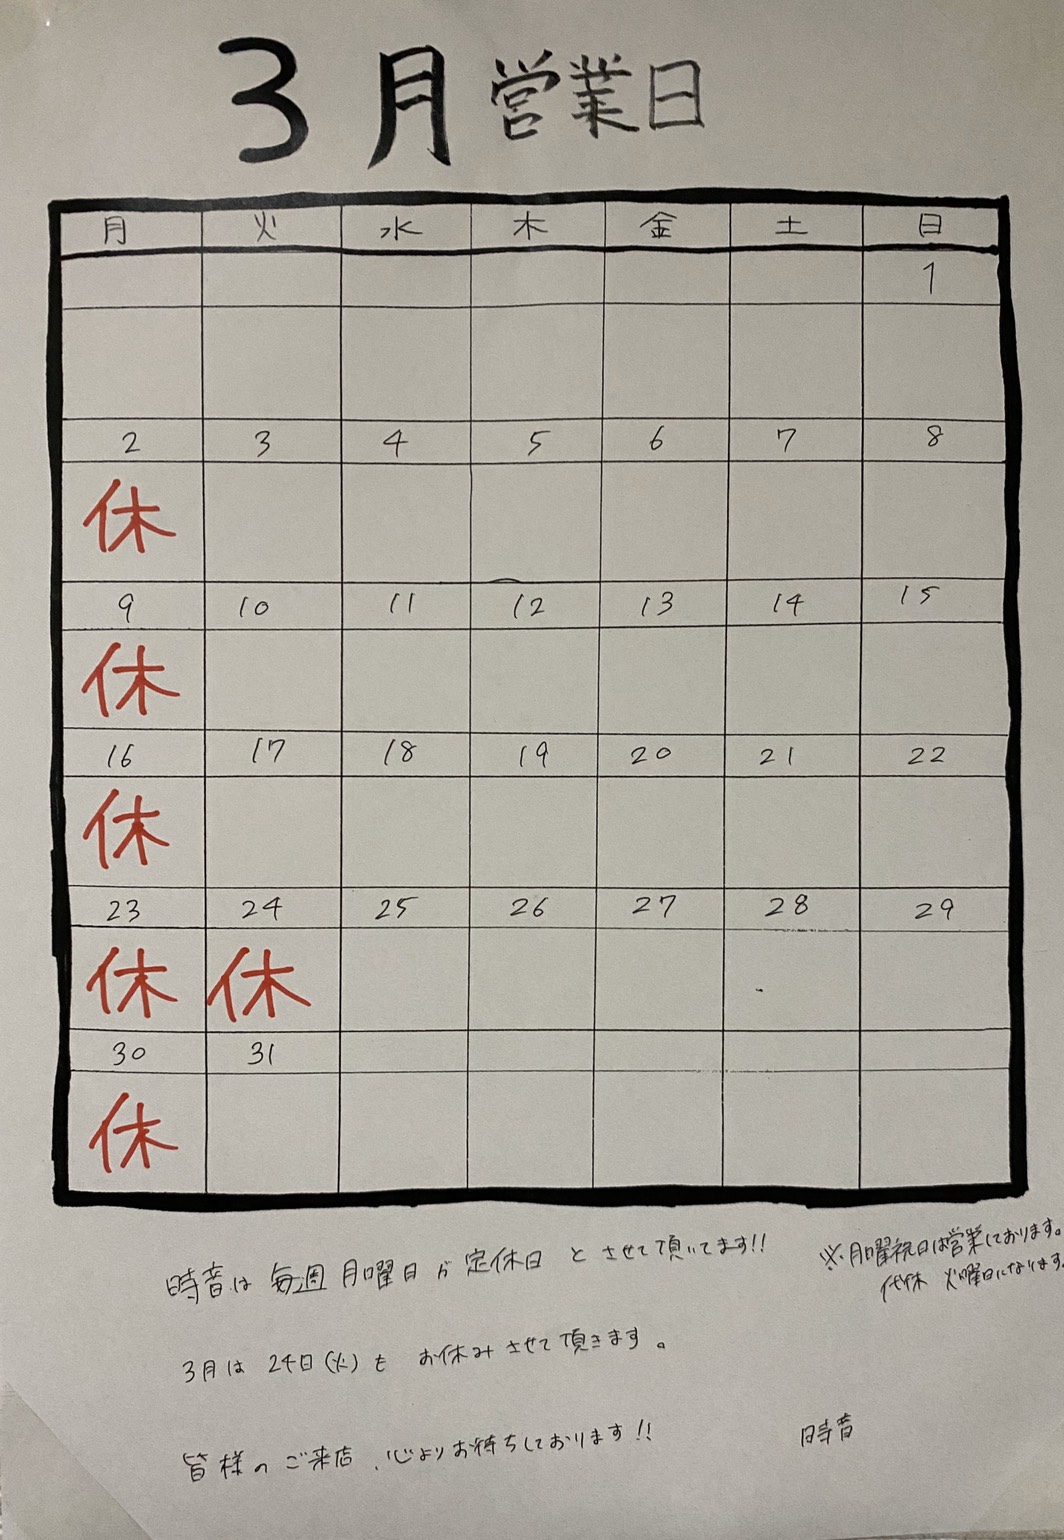 3月営業日
月 火 水 木 金 土 日
1
2 3 4 5 6 7 8
休
9 10 11 12 13 14 15
休
16 17 18 19 20 21 22
休
23 24 25 26 27 28 29
休 休
30 31
休
時音は 毎週 月曜日が定休日 と させて頂いてます!!
※月曜祝日は営業しております。
代休 火曜日になります。
3月は 24日(火)も お休みさせて頂きます。
皆様のご来店、心よりお待ちしております!!
時音